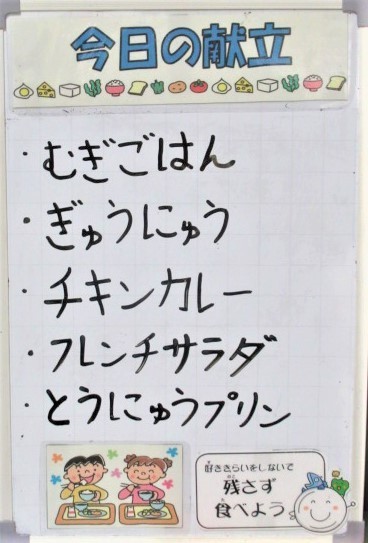 今日の献立
・むぎごはん
・ぎゅうにゅう
・チキンカレー
・フレンチサラダ
・とうにゅうプリン
好ききらいをしないで
残さず
食べよう。